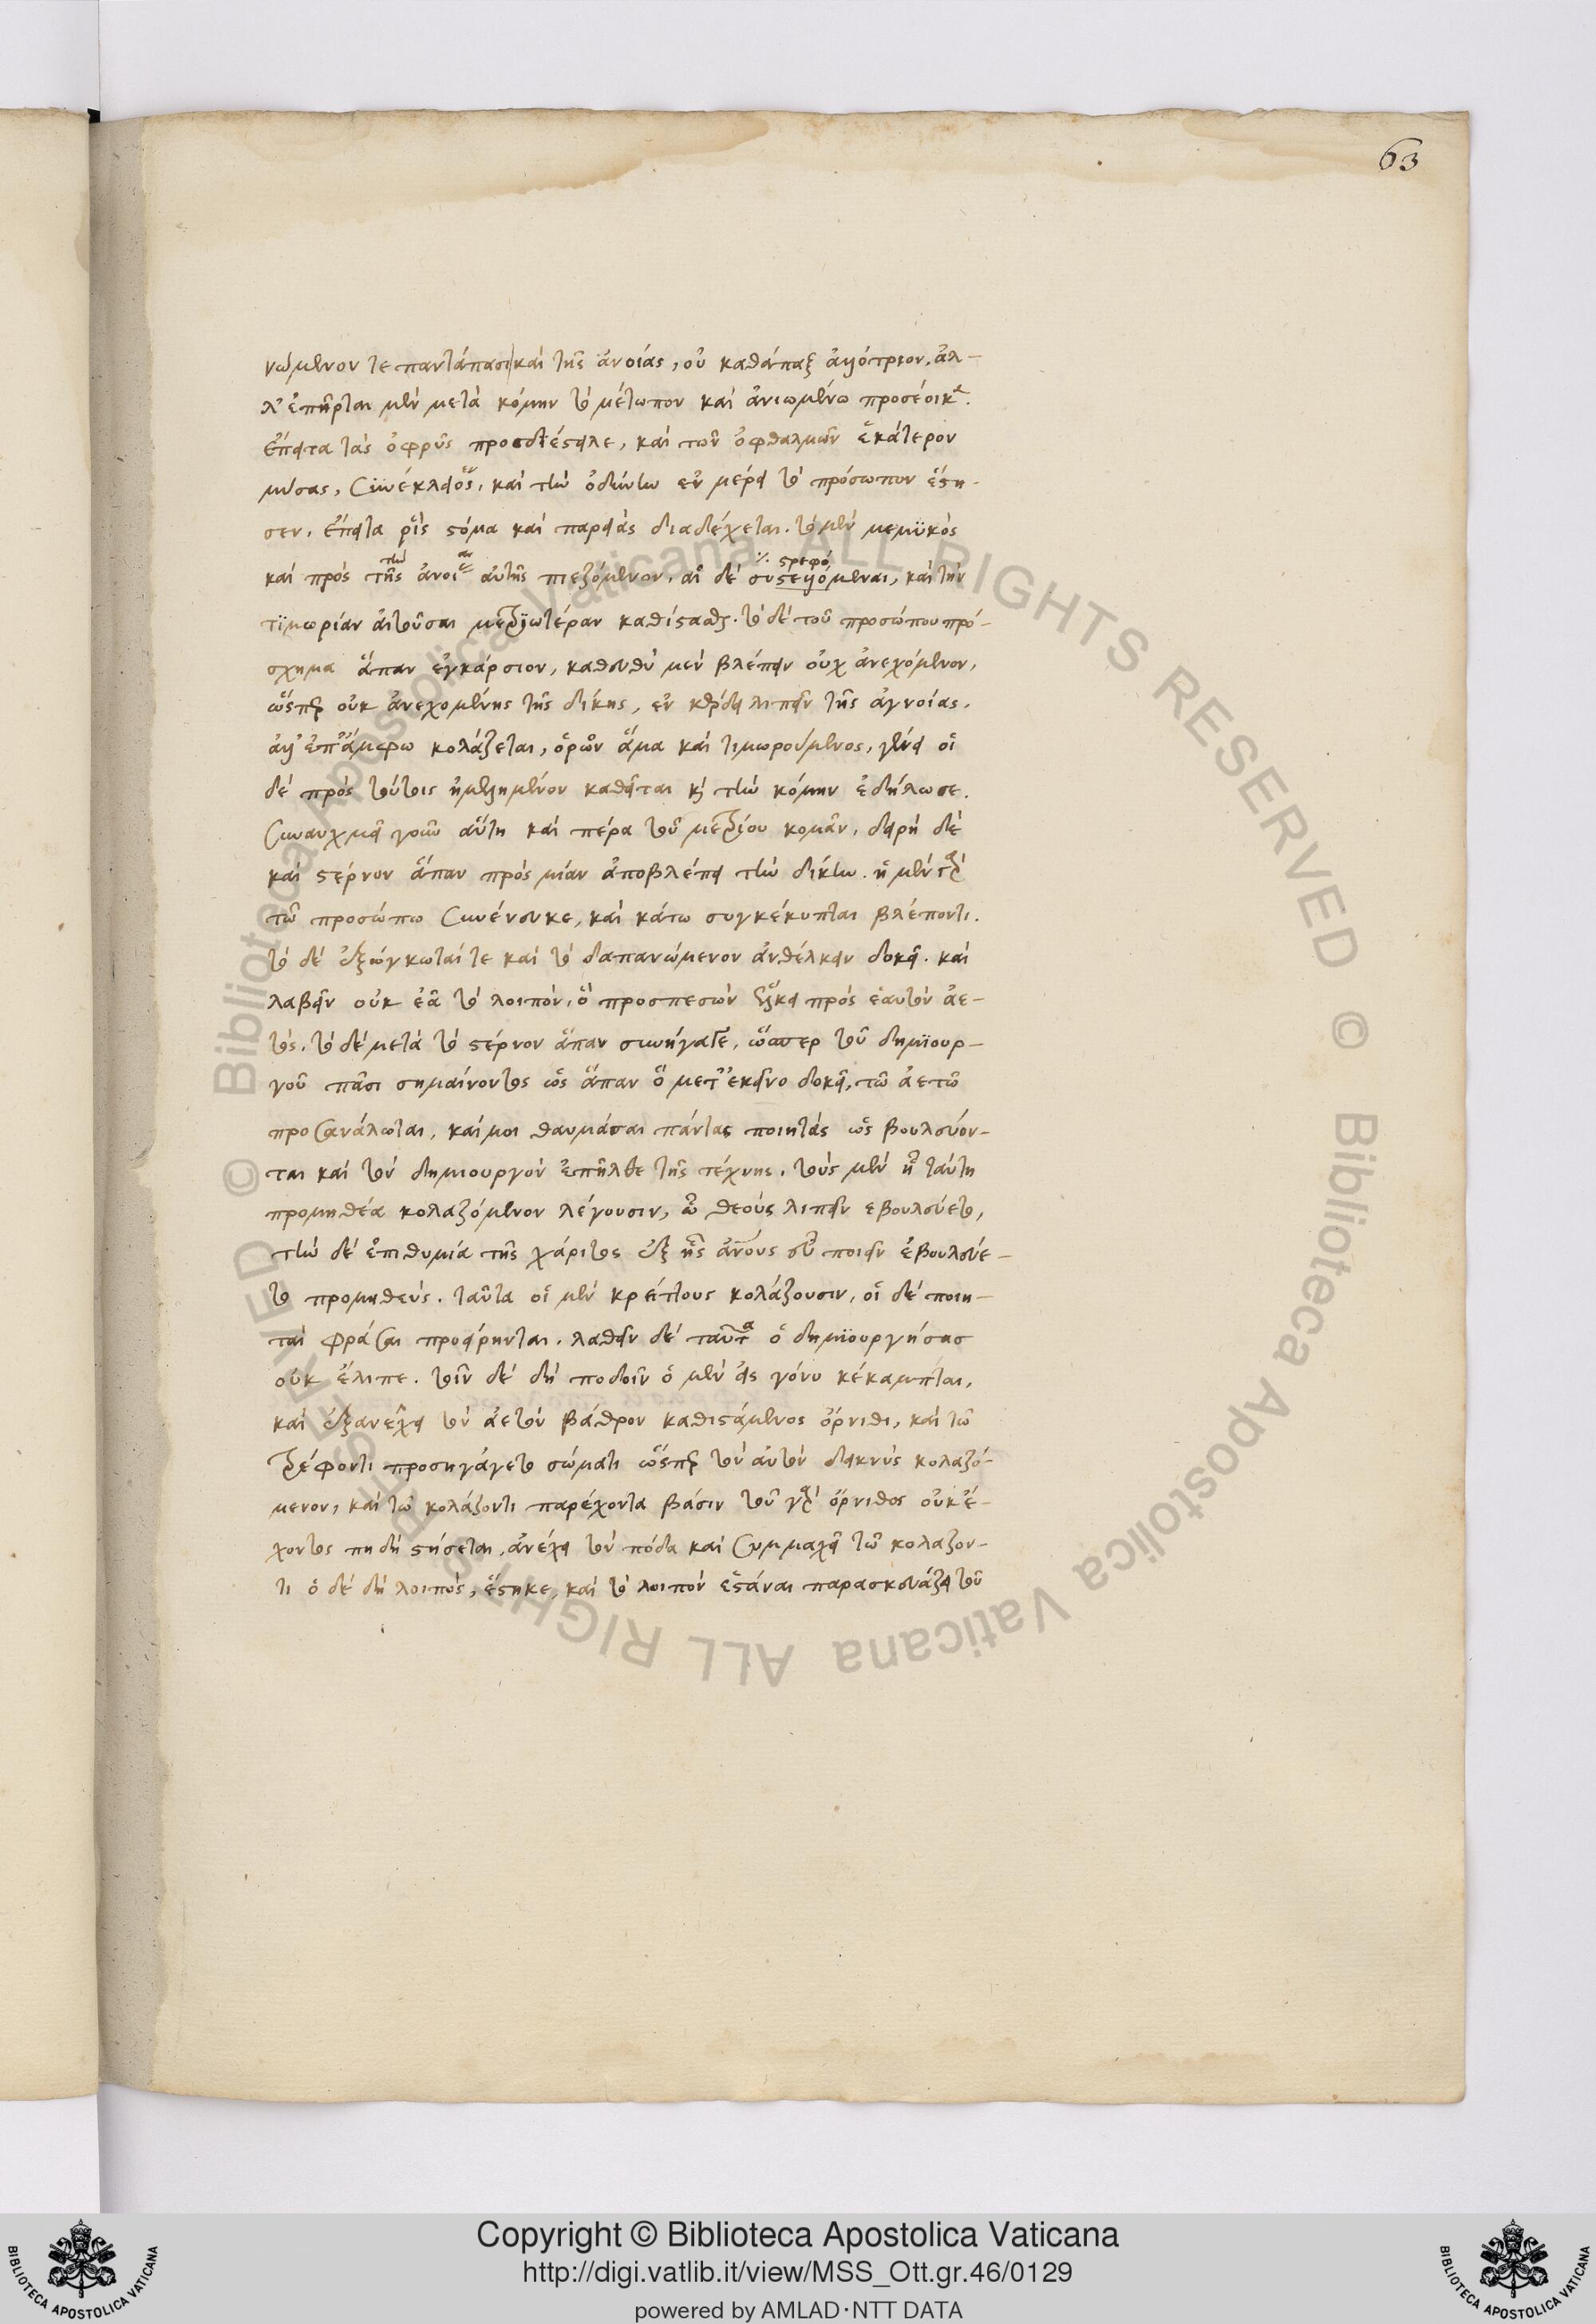 63
νώμενον τε παντάπασι καὶ τῆς ἀνοίας, οὐ καθάπαξ ἀλλότριον. ἀλ-
λ' ἐπῆρται μὲν μετὰ κόμην τὸ μέτωπον καὶ ἀνιωμένω προσέοικε.
ἔπειτα τὰς ὀφρῦς προσδιέστειλε, καὶ τῶν ὀφθαλμῶν ἑκάτερον
μύσας, καὶ τὴν ὀδύνην ἐν μέρει τὸ πρόσωπον ἔστη-
σεν. ἔπειτα ῥὶς στόμα καὶ παρειὰς διαδέχεται. τὸ μὲν μεμϋκὸς
καὶ πρὸς τῆς ἀνοι αὐτῆς πιεζόμενον, αἱ δὲ συστελλόμεναι, καὶ τὴν
τὴν αν στρεφό
τϊμωρίαν αἰτοῦσαι μετρϊωτέραν καθίστασθαι. τὸ δὲ τοῦ προσώπου πρό-
σχημα ἅπαν ἐγκάρσιον, κατευθὺ μὲν βλέπειν οὐχ ἀνεχόμενον,
ὥσπερ οὐκ ἀνεχομένης τῆς δίκης, ἐν κέρδει λιπεῖν τῆς ἀγνοίας.
ἀλλ' ἐπ' ἄμφω κολάζεται, ὁρῶν ἅμα καὶ τιμωρούμενος, γένει οἱ
δὲ πρὸς τούτοις ἠμελημένον καθεῖται καὶ τὴν κόμην ἐδήλωσε.
συναυχμεῖ γοῦν αὕτη καὶ πέρα τοῦ μετρίου κομᾶν, δειρὴ δὲ
καὶ στέρνον ἅπαν πρὸς μίαν ἀποβλέπει τὴν δίκην. ἡ μὲν γὰρ
τῶ προσώπω συνένευκε, καὶ κάτω συγκέκυπται βλέποντι.
τὸ δὲ ἐξώγκωταί τε καὶ τὸ δαπανώμενον ἀνθέλκειν δοκεῖ. καὶ
λαβεῖν οὐκ ἐᾶ τὸ λοιπὸν, ὃ προσπεσὼν ἕλκει πρὸς ἑαυτὸν ἀε-
τός. τὸ δὲ μετὰ τὸ στέρνον ἅπαν συνήγαγε, ὥσπερ τοῦ δημϊουρ-
γοῦ πᾶσι σημαίνοντος ὡς ἅπαν ὃ μετ' ἐκεῖνο δοκεῖ, τῶ ἀετῶ
προσανάλωται, καί μοι θαυμάσαι πάντας ποιητὰς ὡς βουλεύον-
ται καὶ τὸν δημιουργὸν ἐπῆλθε τῆς τέχνης. τοὺς μὲν ἢ ταύτη
προμηθέα κολαζόμενον λέγουσιν, ὦ θεοὺς λιπεῖν εβουλεύετο,
τὴν δὲ ἐπιθυμία τῆς χάριτος ἐξ ἧς ἀνους εὖ ποιεῖν ἐβουλεύε-
το προμηθεύς. ταῦτα οἱ μὲν κρείττους κολάζουσιν, οἱ δὲ ποιη-
ταὶ φράσαι προείρηνται. λαθεῖν δὲ ταῦτα ὁ δημϊουργήσας
οὐκ ἔλιπε. τοῖν δὲ δὴ ποδοῖν ὁ μὲν εἰς γόνυ κέκαμπται,
καὶ ἐξανέχει τὸν ἀετὸν βάθρον καθιστάμενος ὄρνιθι, καὶ τῶ
τρέφοντι προσηγάγετο σώματι ὥσπερ τὸν αὐτὸν δεικνὺς κολαζό-
μενον, καὶ τῶ κολάζοντι παρέχοντα βάσιν τοῦ γὰρ ὄρνιθος οὐκ ἔ-
χοντος πηδὴ στήσεται, ἀνέχει τὸν πόδα καὶ συμμαχεῖ τῶ κολαζον-
τι ὁ δὲ δὴ λοιπὸς, ἕστηκε, καὶ τὸ λοιπὸν ἑστάναι παρασκευάζει τοῦ
© Biblioteca Apostolica Vaticana ALL RIGHTS RESERVED © Biblioteca Apostolica Vaticana ALL RIGHTS RESERVED
Copyright © Biblioteca Apostolica Vaticana
http://digi.vatlib.it/view/MSS_Ott.gr.46/0129
powered by AMLAD·NTT DATA
BIBLIOTECA APOSTOLICA VATICANA
BIBLIOTECA APOSTOLICA VATICANA